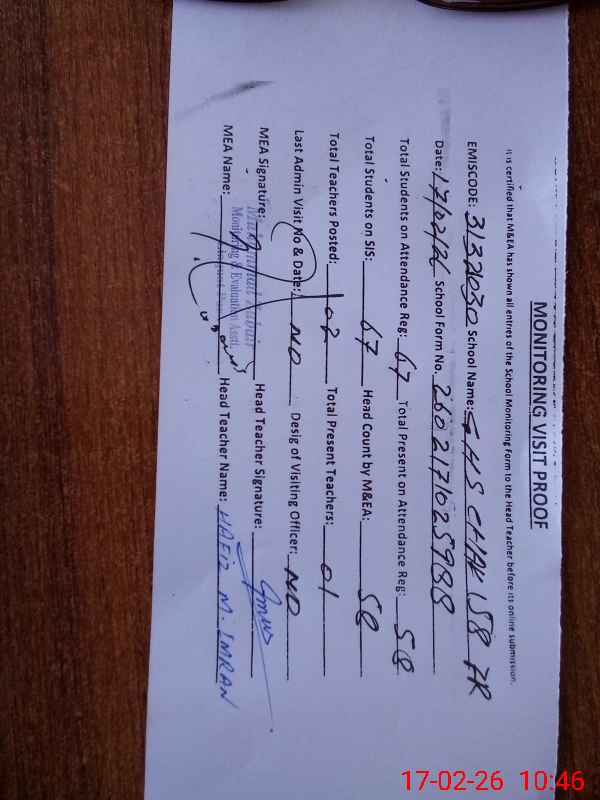 MONITORING VISIT PROOF
It is certified that M&EA has shown all entries of the School Monitoring Form to the Head Teacher before its online submission.
EMISCODE: 3132030 School Name: GHS CHAK 158 7R
Date: 17/02/26 School Form No. 260217625988
Total Students on Attendance Reg: 67 Total Present on Attendance Reg: 58
Total Students on SIS: 67 Head Count by M&EA: 58
Total Teachers Posted: 02 Total Present Teachers: 01
Last Admin Visit No & Date: NO Desig of Visiting Officer: NO
MEA Signature: Head Teacher Signature:
Monitoring & Evaluation Asstt.
MEA Name: Head Teacher Name: HAFIZ M. IMRAN
17-02-26 10:46